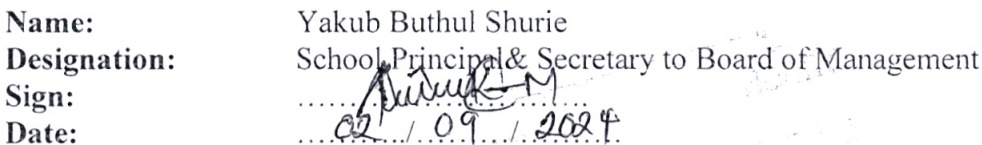 Name: Yakub Buthul Shurie
Designation: School Principal& Secretary to Board of Management
Sign:
Date: 02 / 09 / 2024